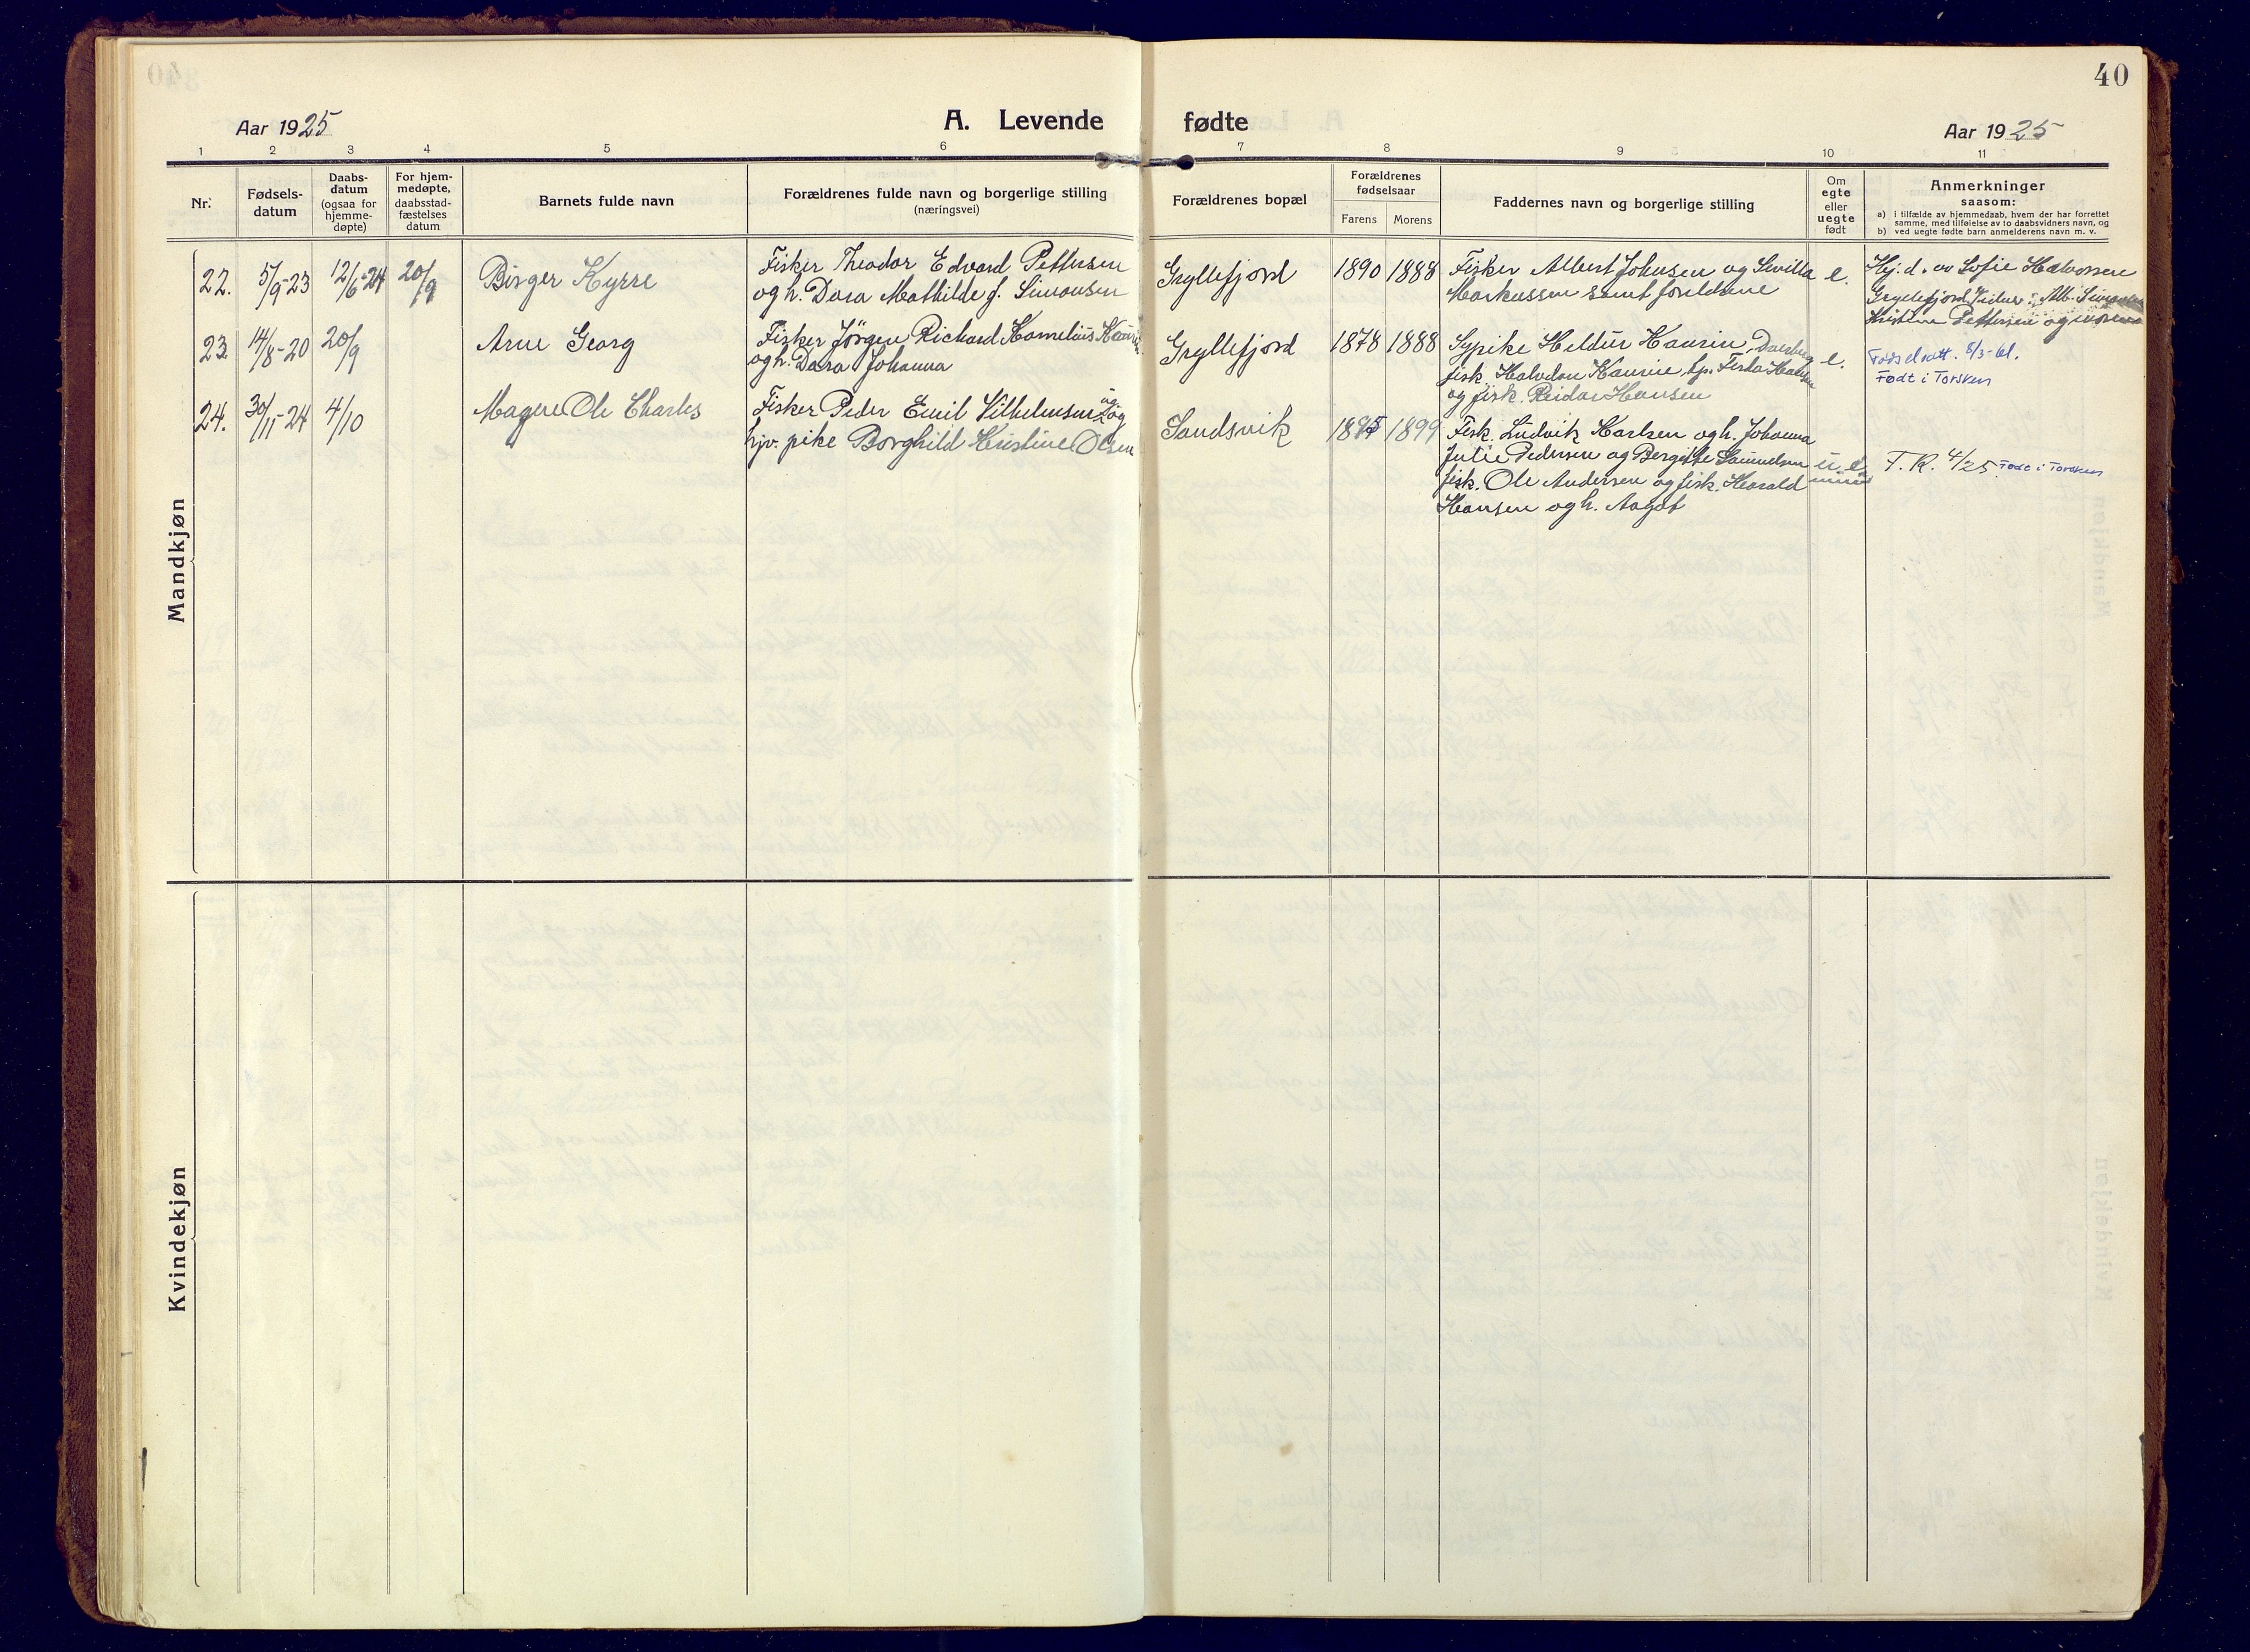 40
Aar 1925
A. Levende fødte
Aar 1925
1 2 3 4 5 6 7 8 9 10 11
Nr.
Fødsels-
datum
Daabs-
datum
(ogsaa for
hjemme-
døpte)
For hjem-
medøpte,
daabsstad-
fæstelses
datum
Barnets fulde navn
Forældrenes fulde navn og borgerlige stilling
(næringsvei)
Forældrenes bopæl
Forældrenes
fødselsaar
Farens Morens
Faddernes navn og borgerlige stilling
Om
egte
eller
uegte
født
Anmerkninger
saasom:
a) i tilfælde av hjemmedaab, hvem der har forrettet
samme, med tilføielse av to daabsvidners navn, og
b) ved uegte fødte barn anmelderens navn m. v.
Mandkjøn
22. 5/9-23 12/6-24 20/9 Birger Kyrre
Fisker Theodor Edvard Pettersen
og h. Dora Mathilde f. Simonsen
Gryllefjord 1890 1888
Fisker Albert Johnsen og Sevilla
Markussen samt foreldrene
e.
Hj. d. av Sofie Halvorsen
Gryllefjord. Vidner: Alb. Simonsen
Kristine Pettersen og moren
23. 14/8-20 20/9 Arne Georg
Fisker Jörgen Richard Kornelius
og h. Dora Johanna
Gryllefjord 1878 1888
Sypike Heldur Kaurin,
fisk. Halvdan Kaurin, hp.
og fisk. Reidar Hansen
e.
Fødselsatt. 8/3-61.
Født i Torsken
24. 30/11-24 4/10 Magne Ole Charles
Fisker Peder Emil Vilhelmsen og
hjv. pike Borghild Kristine Olsen
Sandsvik 1895 1899
Fisk. Ludvik Karlsen og h. Johanna
Julie Pedersen og Bergitte Samuelsen
fisk. Ole Andersen og fisk. Harald
Hansen og h. Aagot
u. e.
T. R. 4/25 Født i Torsken
Kvindekjøn